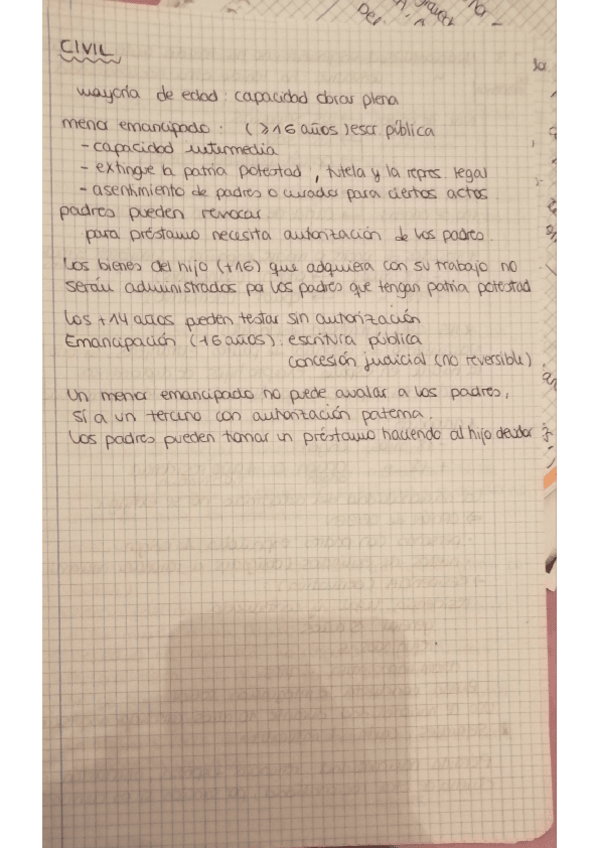 CIVIL
mayoría de edad : capacidad obrar plena
menor emancipado : (≥16 años) escr. pública
- capacidad intermedia
- extingue la patria potestad, tutela y la repres. legal
- asentimiento de padres o curador para ciertos actos.
padres pueden revocar.
para préstamo necesita autorización de los padres.
Los bienes del hijo (+16) que adquiera con su trabajo no
serán administrados por los padres que tengan patria potestad
Los +14 años pueden testar sin autorización
Emancipación (-16 años) : escritura pública
concesión judicial (no reversible).
Un menor emancipado no puede avalar a los padres,
sí a un tercero con autorización paterna.
Los padres pueden tomar un préstamo haciendo al hijo deudor